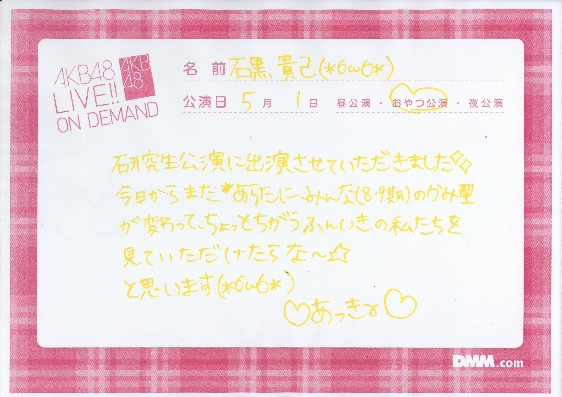 AKB48
LIVE!!
ON DEMAND
AKB
48
名前 石黒貴己(*óωò*)
公演日 5月1日 昼公演・おやつ公演・夜公演
研究生公演に出演させていただきました
今日からまた*あらたにみんな(8・9期)のかみ型
が変わって、ちょっとちがうふんいきの私たちを
見ていただけたらな〜☆
と思います(*óωò*)
♡あっきɤ♡
DMM.com